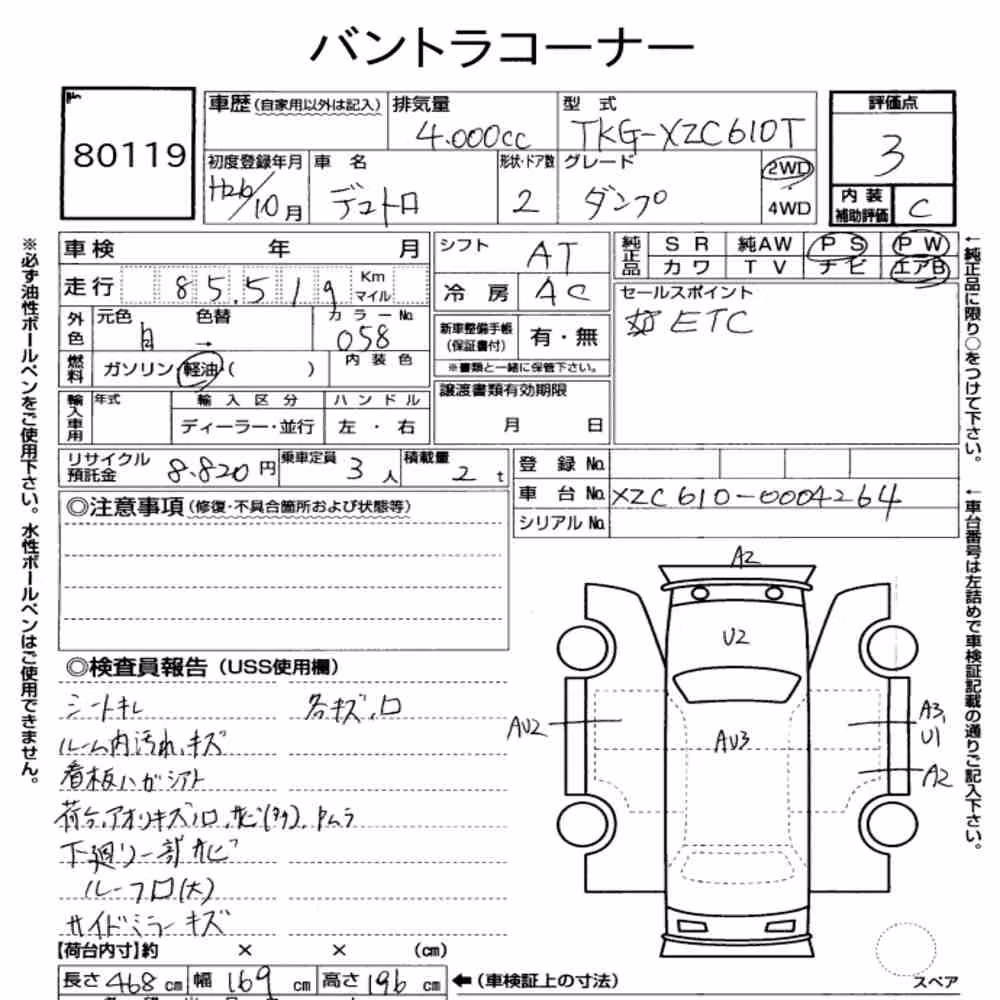 バントラコーナー
80119
車歴(自家用以外は記入)
排気量
4.000cc
型 式
TKG-XZC610T
評価点
3
初度登録年月
H26/10月
車 名
デュトロ
形状・ドア数
2
グレード
ダンプ
2WD
4WD
内装補助評価
C
車検 年 月
シフト
AT
純正品
SR 純AW PS PW
カワ TV ナビ エアB
走行
85,519
Km
マイル
冷房
AC
セールスポイント
ETC
外色
元色 色替 カラーNo.
白 → 058
新車整備手帳
(保証書付)
有・無
※書類と一緒に保管下さい。
燃料
ガソリン・軽油・( )
内装色
輸入車用
年式
輸入区分
ハンドル
ディーラー・並行
左・右
譲渡書類有効期限
月 日
リサイクル預託金
8.820円
乗車定員
3人
積載量
2t
登録No.
車台No.
XZC610-0004264
シリアルNo.
◎注意事項(修復・不具合箇所および状態等)
◎検査員報告(USS使用欄)
シートキレ
各キズ、凹
ルーム内汚れ、キズ
看板ハガシアト
荷台、アオリキズ凹、サビ(多)
下廻り一部サビ
ルーフ凹(大)
サイドミラーキズ
【荷台内寸】約 × × (cm)
長さ468cm 幅169cm 高さ196cm
←(車検証上の寸法)
A2
U2
AU2
AU3
A3,
U1
A2
スペア
※必ず油性ボールペンをご使用下さい。水性ボールペンはご使用できません。
←純正品に限り○をつけて下さい。
←車台番号は左詰めで車検証記載の通りご記入下さい。